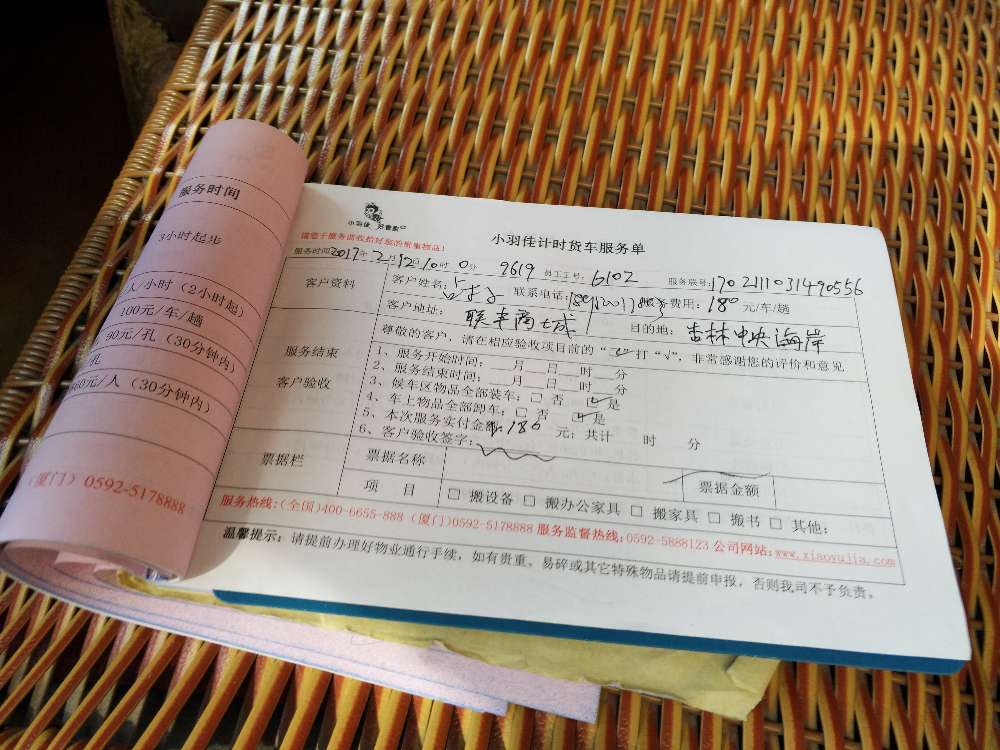 服务时间
3小时起步
人/小时（2小时起）
100元/车/趟
90元/孔（30分钟内）
孔
60元/人（30分钟内）
（厦门）0592-5178888
小羽佳 好管家
小羽佳计时货车服务单
服务时间2017年2月12日10时0分 9619 员工工号：6102 服务联号：170211103149 0556
客户资料 客户姓名： 联系电话： 服务费用：180元/车/趟
客户地址：联丰商城 目的地：杏林中央海岸
服务结束 客户验收
尊敬的客户，请在相应验收项目前的“□”打“√”，非常感谢您的评价和意见
1、服务开始时间：__月__日__时__分
2、服务结束时间：__月__日__时__分
3、候车区物品全部装车：□否 ☑是
4、车上物品全部卸车：□否 ☑是
5、本次服务实付金额：180元；共计 时 分
6、客户验收签字：
票据栏 票据名称 票据金额
项 目 □搬设备 □搬办公家具 □搬家具 □搬书 □其他：
服务热线：(全国)400-6655-888 (厦门)0592-5178888 服务监督热线：0592-5888123 公司网站：www.xiaoyujia.com
温馨提示：请提前办理好物业通行手续，如有贵重、易碎或其它特殊物品请提前申报，否则我司不予负责。